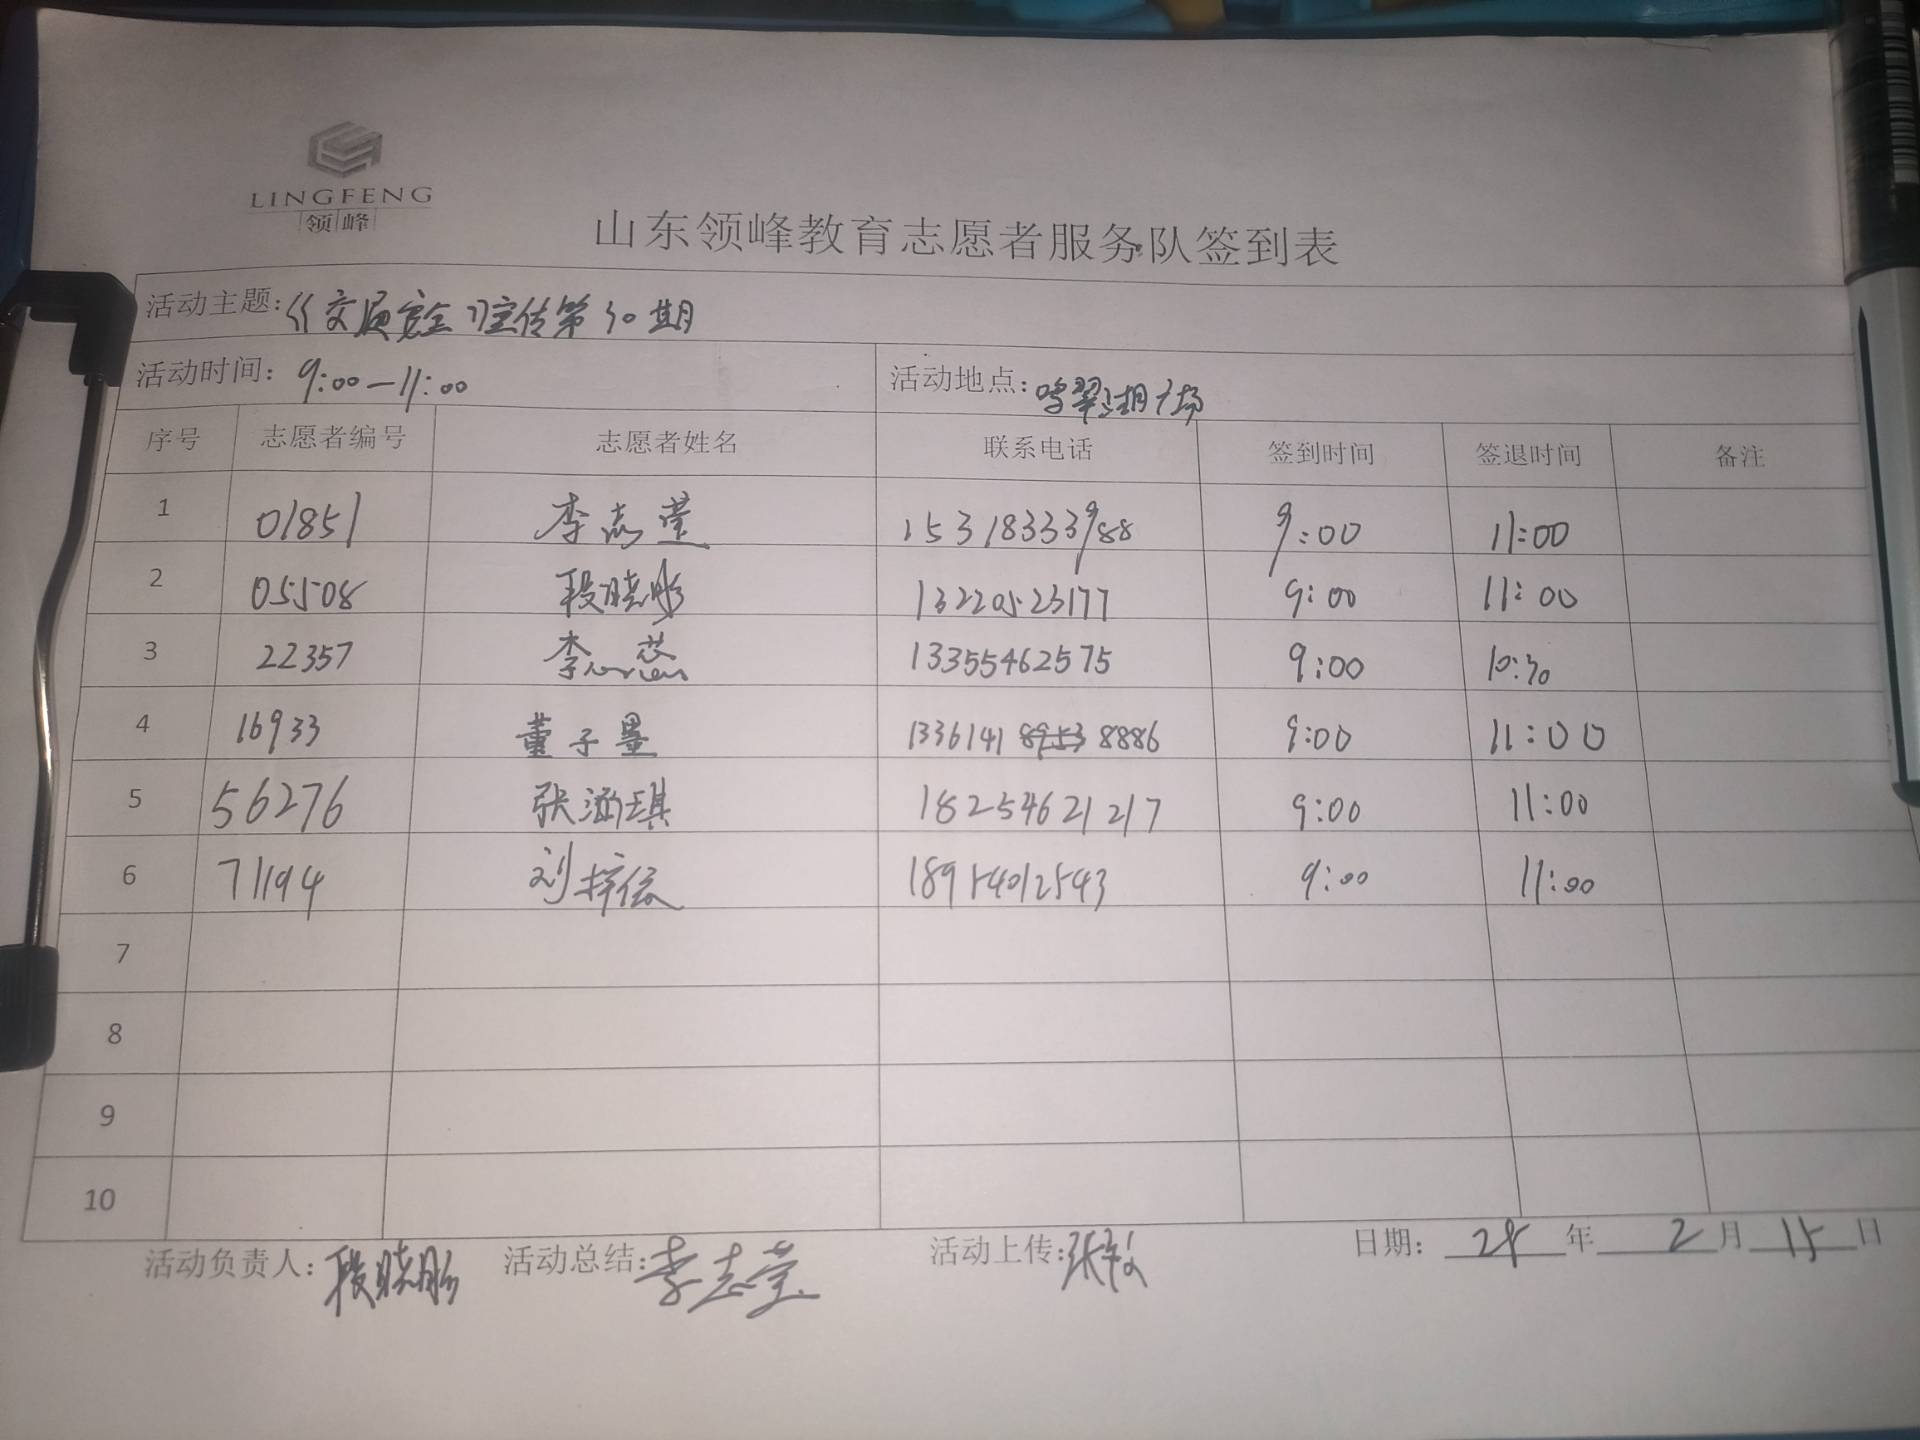 LINGFENG
领峰
山东领峰教育志愿者服务队签到表
活动主题:《交通安全》宣传第30期
活动时间: 9:00—11:00 活动地点: 鸣翠湖广场
序号 志愿者编号 志愿者姓名 联系电话 签到时间 签退时间 备注
1 01851 李志莹 15318333988 9:00 11:00
2 05508 段晓彤 13220523177 9:00 11:00
3 22357 李心蕊 13355462575 9:00 10:30
4 16933 董子墨 1336141 8953 8886 9:00 11:00
5 56276 张涵琪 18254621217 9:00 11:00
6 71194 刘梓依 18954012543 9:00 11:00
7
8
9
10
活动负责人: 段晓彤 活动总结: 李志莹 活动上传: 张 日期: 年 2 月 15 日